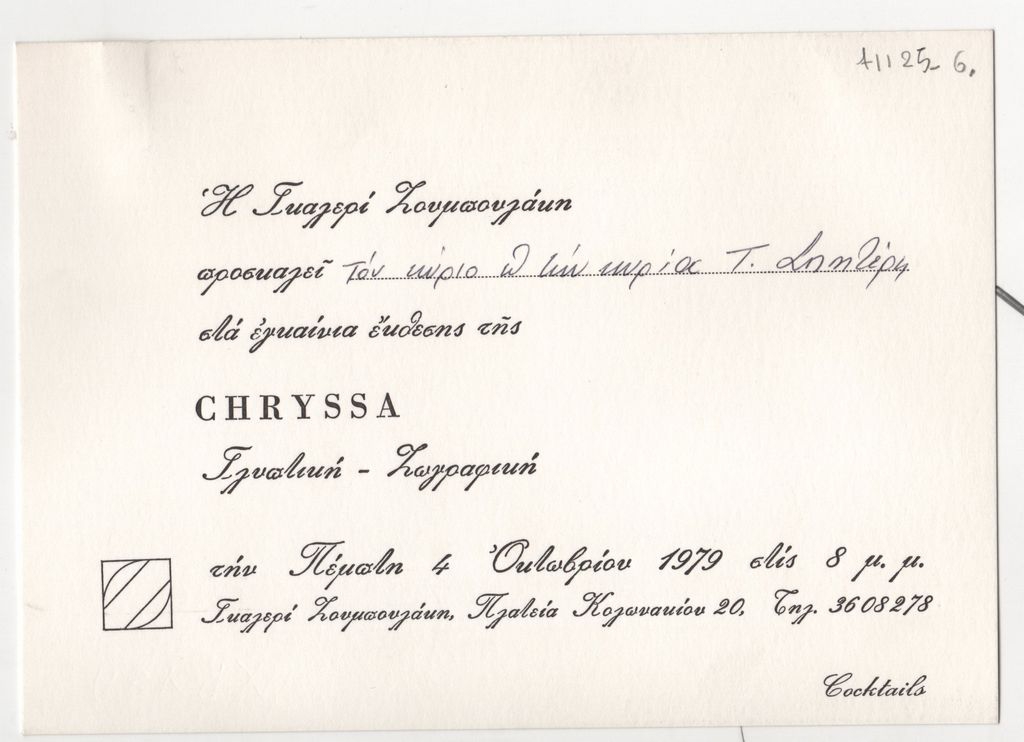 Α11 25- 6.
Ἡ Γκαλερί Ζουμπουλάκη
προσκαλεῖ Τόν κύριο & τήν κυρία Τ. Σπητέρη
στά ἐγκαίνια ἔκθεσης τῆς
CHRYSSA
Γλυπτική - Ζωγραφική
τήν Πέμπτη 4 Ὀκτωβρίου 1979 στίς 8 μ. μ.
Γκαλερί Ζουμπουλάκη, Πλατεία Κολωνακίου 20, Τηλ. 3608278
Cocktails